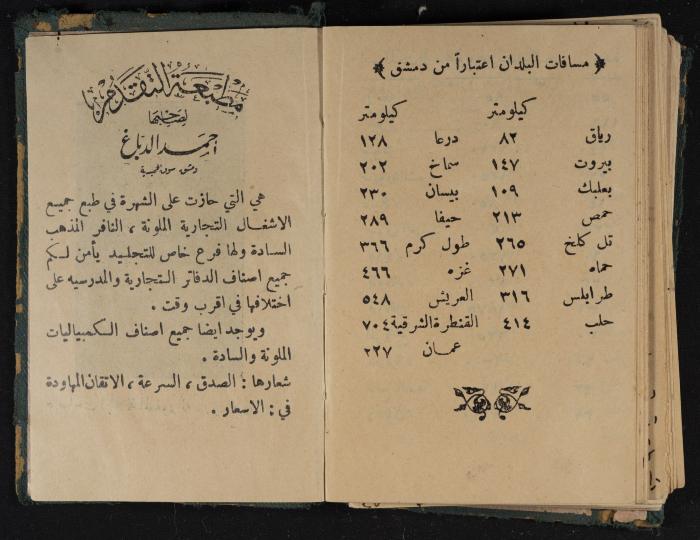 ﴿ مسافات البلدان اعتباراً من دمشق ﴾
كيلومتر كيلومتر
رياق ٨٢ درعا ١٢٨
بيروت ١٤٧ سماخ ٢٠٢
بعلبك ١٠٩ بيسان ٢٣٠
حمص ٢١٣ حيفا ٢٨٩
تل كلخ ٢٦٥ طول كرم ٣٦٦
حماه ٢٧١ غزه ٤٦٦
طرابلس ٣١٦ العريش ٥٤٨
حلب ٤١٤ القنطرة الشرقية ٧٠٤
عمان ٢٢٧
مطبعة التقدم
لصاحبها
احمد الدباغ
دمشق سوق
هي التي حازت على الشهرة في طبع جميع
الاشغال التجارية الملونة ، النافر المذهب
السادة ولها فرع خاص للتجليد يأمن لكم
جميع اصناف الدفاتر التجارية والمدرسيه على
اختلافها في اقرب وقت .
ويوجد ايضا جميع اصناف الكمبياليات
الملونة والسادة .
شعارها : الصدق ، السرعة ، الاتقان المهاودة
في : الاسعار .